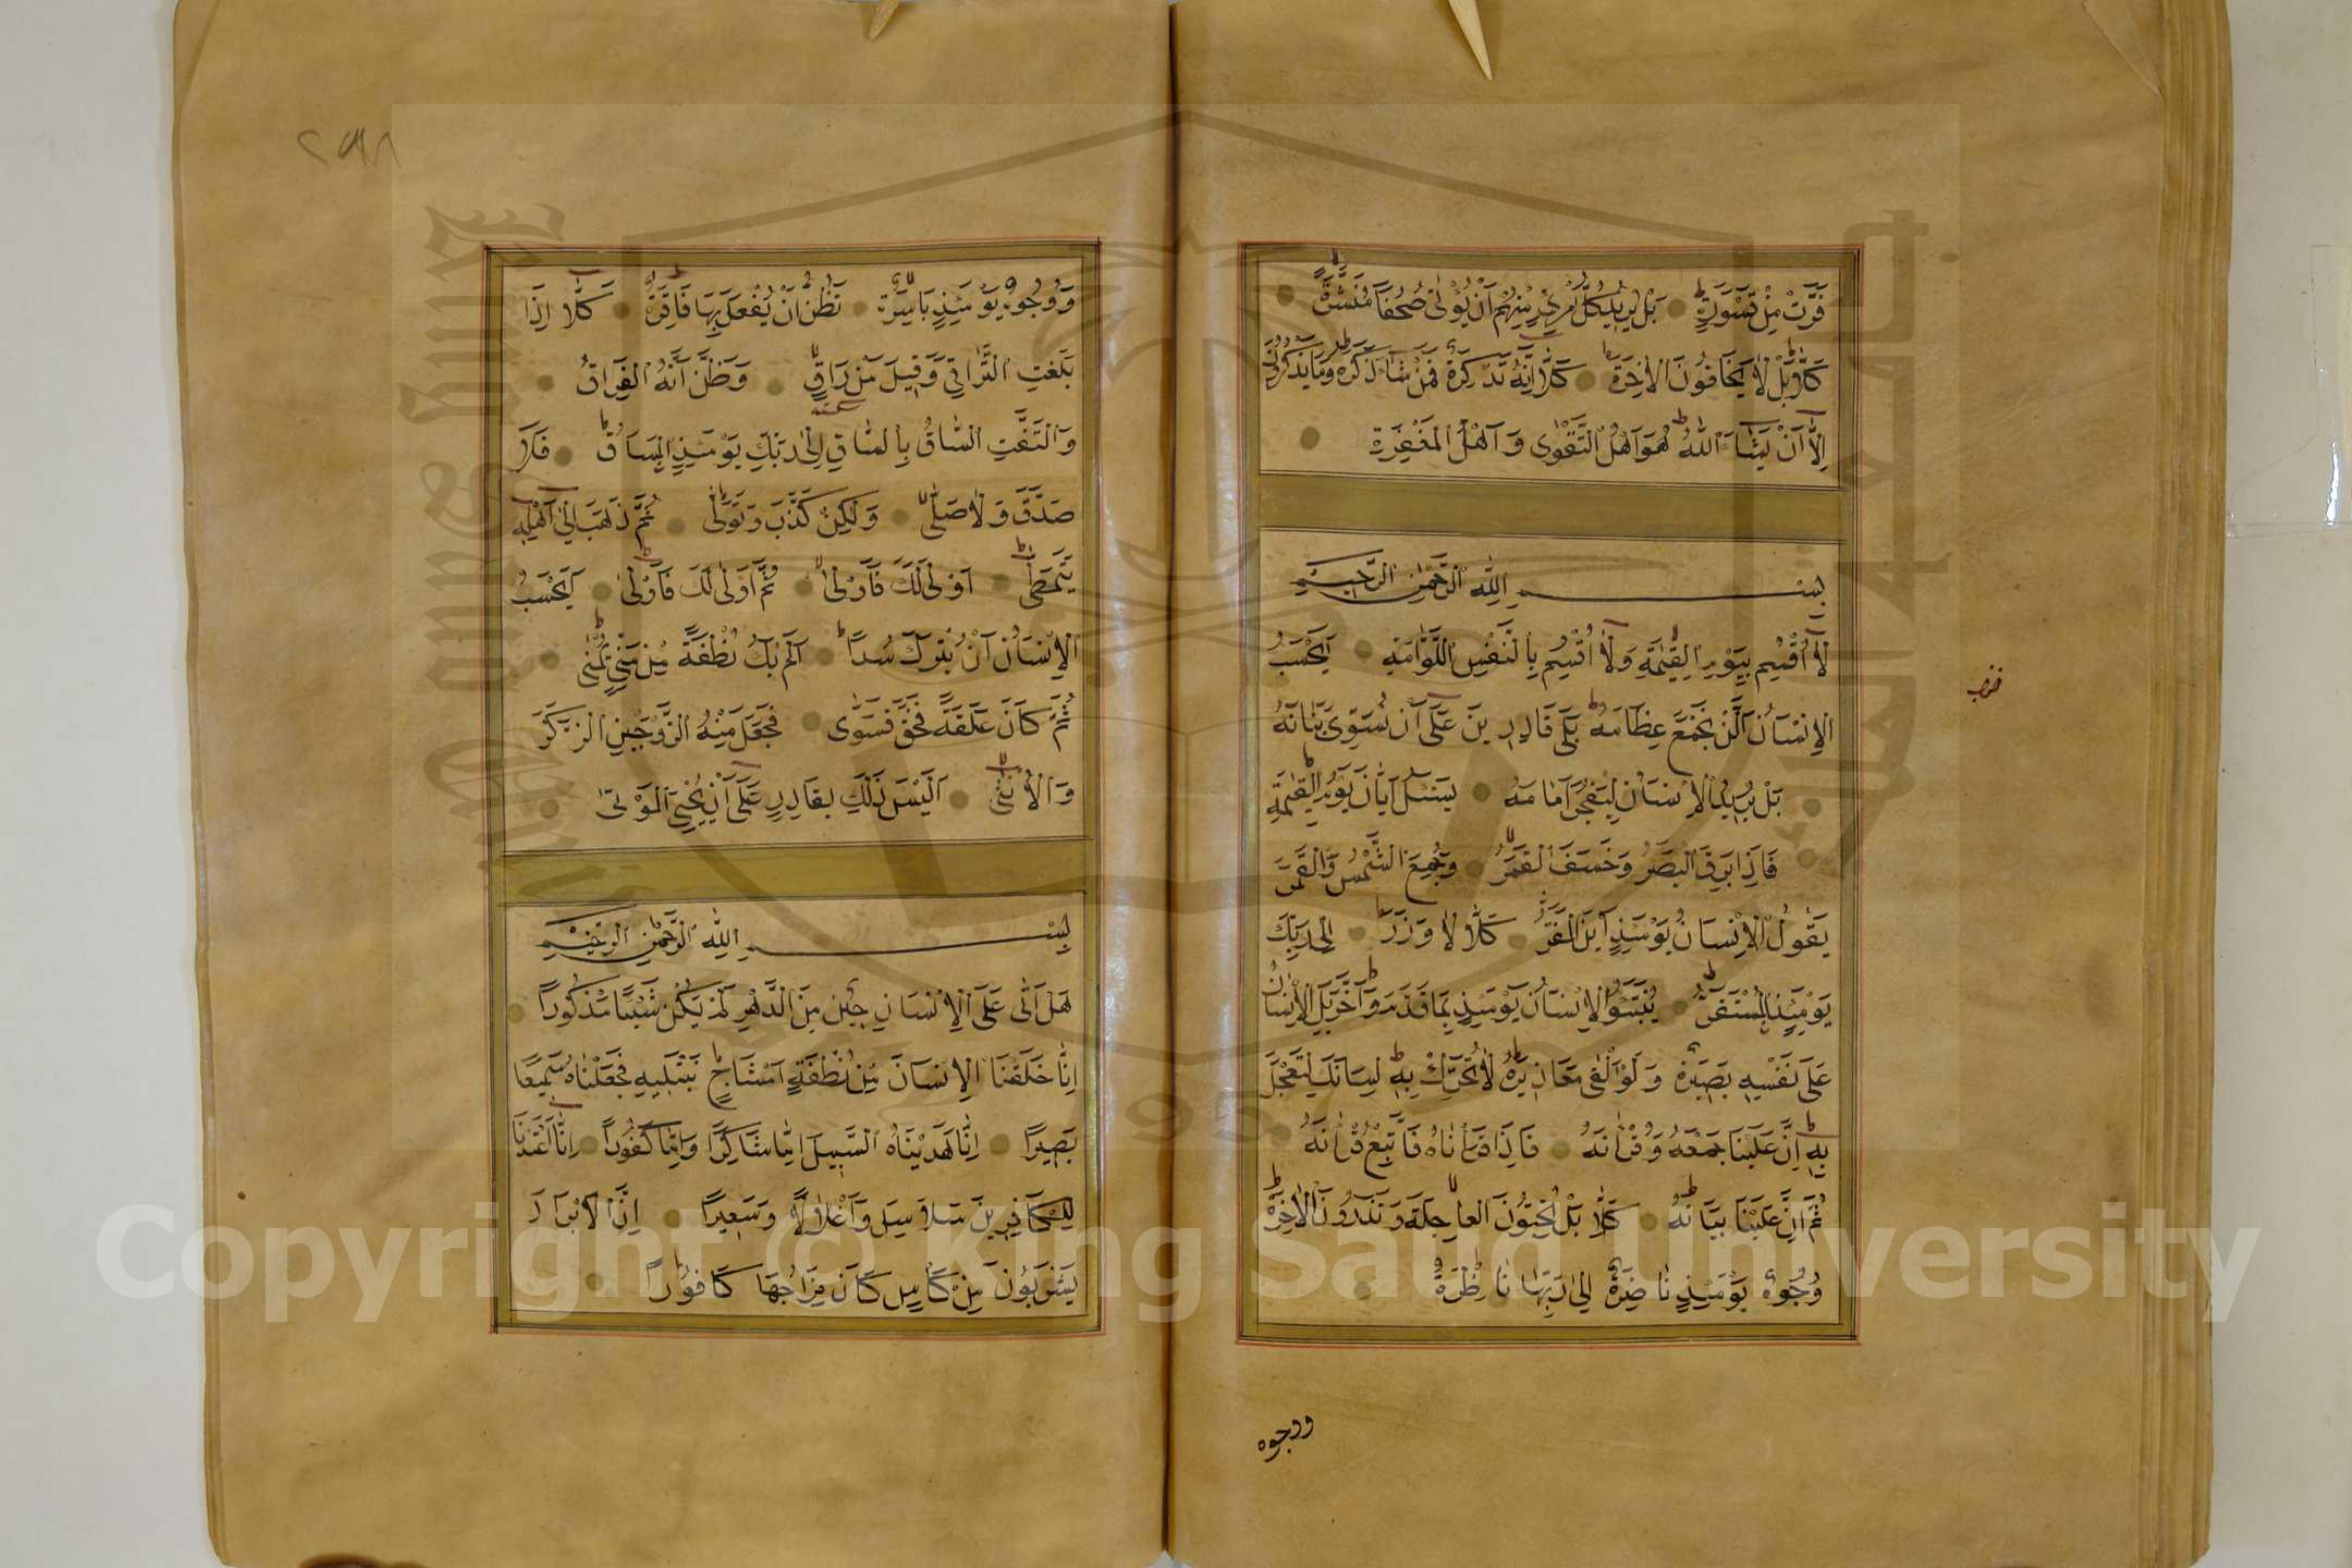 فَرَّتْ مِنْ قَسْوَرَةٍ بَلْ يُرِيدُ كُلُّ امْرِئٍ مِنْهُمْ اَنْ يُؤْتٰى صُحُفًا مُنَشَّرَةً
كَلَّا بَلْ لَا يَخَافُونَ الْاٰخِرَةَ كَلَّا اِنَّهُ تَذْكِرَةٌ فَمَنْ شَاءَ ذَكَرَهُ وَمَا يَذْكُرُونَ
اِلَّا اَنْ يَشَاءَ اللّٰهُ هُوَ اَهْلُ التَّقْوٰى وَ اَهْلُ الْمَغْفِرَةِ
بِسْمِ اللّٰهِ الرَّحْمٰنِ الرَّحِيمِ
لَا اُقْسِمُ بِيَوْمِ الْقِيٰمَةِ وَلَا اُقْسِمُ بِالنَّفْسِ اللَّوَّامَةِ اَيَحْسَبُ
الْاِنْسَانُ اَلَّنْ نَجْمَعَ عِظَامَهُ بَلٰى قَادِرِينَ عَلٰى اَنْ نُسَوِّىَ بَنَانَهُ
بَلْ يُرِيدُ الْاِنْسَانُ لِيَفْجُرَ اَمَامَهُ يَسْئَلُ اَيَّانَ يَوْمُ الْقِيٰمَةِ
فَاِذَا بَرِقَ الْبَصَرُ وَخَسَفَ الْقَمَرُ وَجُمِعَ الشَّمْسُ وَالْقَمَرُ
يَقُولُ الْاِنْسَانُ يَوْمَئِذٍ اَيْنَ الْمَفَرُّ كَلَّا لَا وَزَرَ اِلٰى رَبِّكَ
يَوْمَئِذٍ الْمُسْتَقَرُّ يُنَبَّؤُا الْاِنْسَانُ يَوْمَئِذٍ بِمَا قَدَّمَ وَاَخَّرَ بَلِ الْاِنْسَانُ
عَلٰى نَفْسِهِ بَصِيرَةٌ وَلَوْ اَلْقٰى مَعَاذِيرَهُ لَا تُحَرِّكْ بِهِ لِسَانَكَ لِتَعْجَلَ
بِهِ اِنَّ عَلَيْنَا جَمْعَهُ وَقُرْاٰنَهُ فَاِذَا قَرَاْنَاهُ فَاتَّبِعْ قُرْاٰنَهُ
ثُمَّ اِنَّ عَلَيْنَا بَيَانَهُ كَلَّا بَلْ تُحِبُّونَ الْعَاجِلَةَ وَتَذَرُونَ الْاٰخِرَةَ
وُجُوهٌ يَوْمَئِذٍ نَاضِرَةٌ اِلٰى رَبِّهَا نَاظِرَةٌ
ووجوه
٢٩٨
وَوُجُوهٌ يَوْمَئِذٍ بَاسِرَةٌ تَظُنُّ اَنْ يُفْعَلَ بِهَا فَاقِرَةٌ كَلَّا اِذَا
بَلَغَتِ التَّرَاقِيَ وَقِيلَ مَنْ رَاقٍ وَظَنَّ اَنَّهُ الْفِرَاقُ
وَالْتَفَّتِ السَّاقُ بِالسَّاقِ اِلٰى رَبِّكَ يَوْمَئِذٍ الْمَسَاقُ فَلَا
صَدَّقَ وَلَا صَلّٰى وَلٰكِنْ كَذَّبَ وَتَوَلّٰى ثُمَّ ذَهَبَ اِلٰى اَهْلِهِ
يَتَمَطّٰى اَوْلٰى لَكَ فَاَوْلٰى ثُمَّ اَوْلٰى لَكَ فَاَوْلٰى اَيَحْسَبُ
الْاِنْسَانُ اَنْ يُتْرَكَ سُدًا اَلَمْ يَكُ نُطْفَةً مِنْ مَنِيٍّ يُمْنٰى
ثُمَّ كَانَ عَلَقَةً فَخَلَقَ فَسَوّٰى فَجَعَلَ مِنْهُ الزَّوْجَيْنِ الذَّكَرَ
وَالْاُنْثٰى اَلَيْسَ ذٰلِكَ بِقَادِرٍ عَلٰى اَنْ يُحْيِىَ الْمَوْتٰى
بِسْمِ اللّٰهِ الرَّحْمٰنِ الرَّحِيمِ
هَلْ اَتٰى عَلَى الْاِنْسَانِ حِينٌ مِنَ الدَّهْرِ لَمْ يَكُنْ شَيْئًا مَذْكُورًا
اِنَّا خَلَقْنَا الْاِنْسَانَ مِنْ نُطْفَةٍ اَمْشَاجٍ نَبْتَلِيهِ فَجَعَلْنَاهُ سَمِيعًا
بَصِيرًا اِنَّا هَدَيْنَاهُ السَّبِيلَ اِمَّا شَاكِرًا وَاِمَّا كَفُورًا اِنَّا اَعْتَدْنَا
لِلْكَافِرِينَ سَلَاسِلَ وَاَغْلَالًا وَسَعِيرًا اِنَّ الْاَبْرَارَ
يَشْرَبُونَ مِنْ كَاْسٍ كَانَ مِزَاجُهَا كَافُورًا
Copyright © King Saud University